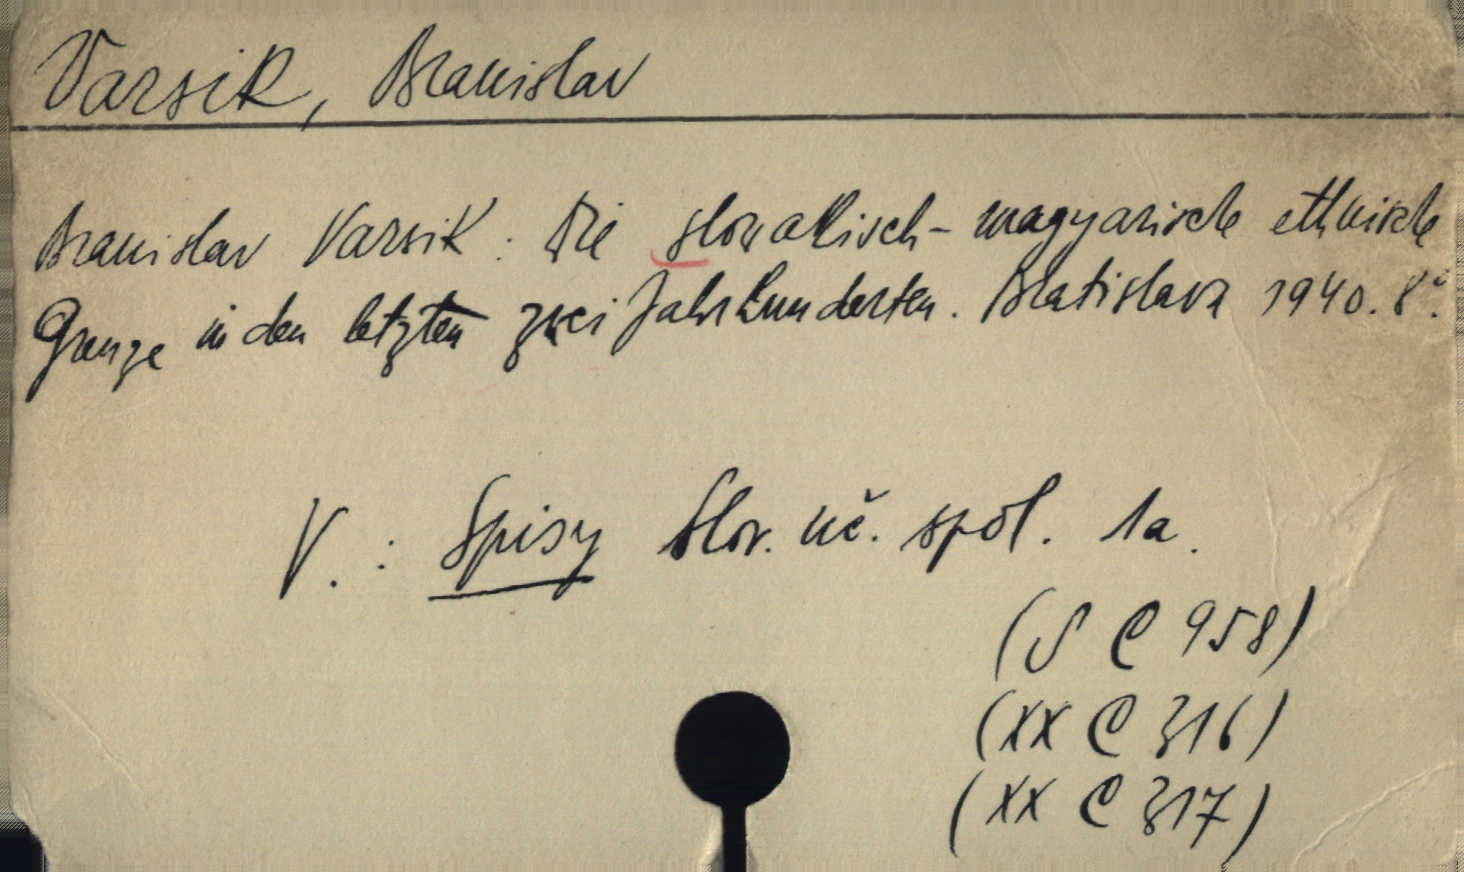 Varsik, Branislav
Branislav Varsik: Die slovakisch-magyarische ethnische
Grenze in den letzten zwei Jahrhunderten. Bratislava 1940. 8°.
V.: Spisy Slov. uč. spol. 1a.
(S C 958)
(XX C 316)
(XX C 317)